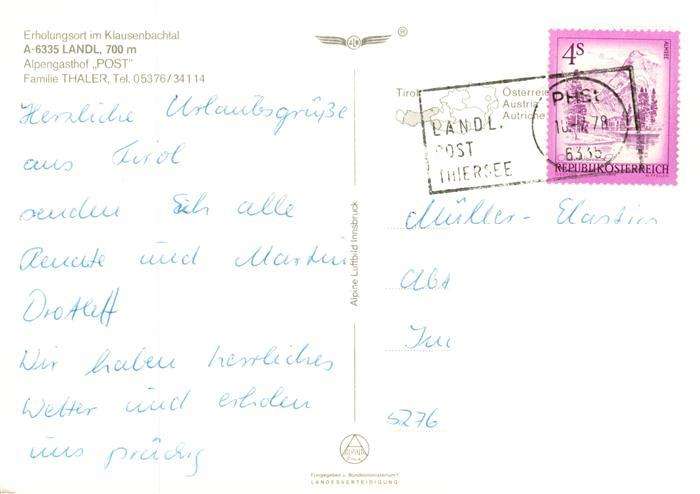 Erholungsort im Klausenbachtal
A-6335 LANDL, 700 m
Alpengasthof „POST"
Familie THALER, Tel. 05376/34114
Herzliche Urlaubsgrüße
aus Tirol
senden Euch alle
Renate und Martin
Wir haben herrliches
Wetter und erholen
uns prächtig
Alpine Luftbild Innsbruck
®
Tirol
Österreich
Austria
Autriche
LANDL.
POST
THIERSEE
6335
4S
ALMSEE
REPUBLIK ÖSTERREICH
Müller- Elastin
Abt
5276
ALPINE
Freigegeben v. Bundesministerium f.
LANDESVERTEIDIGUNG